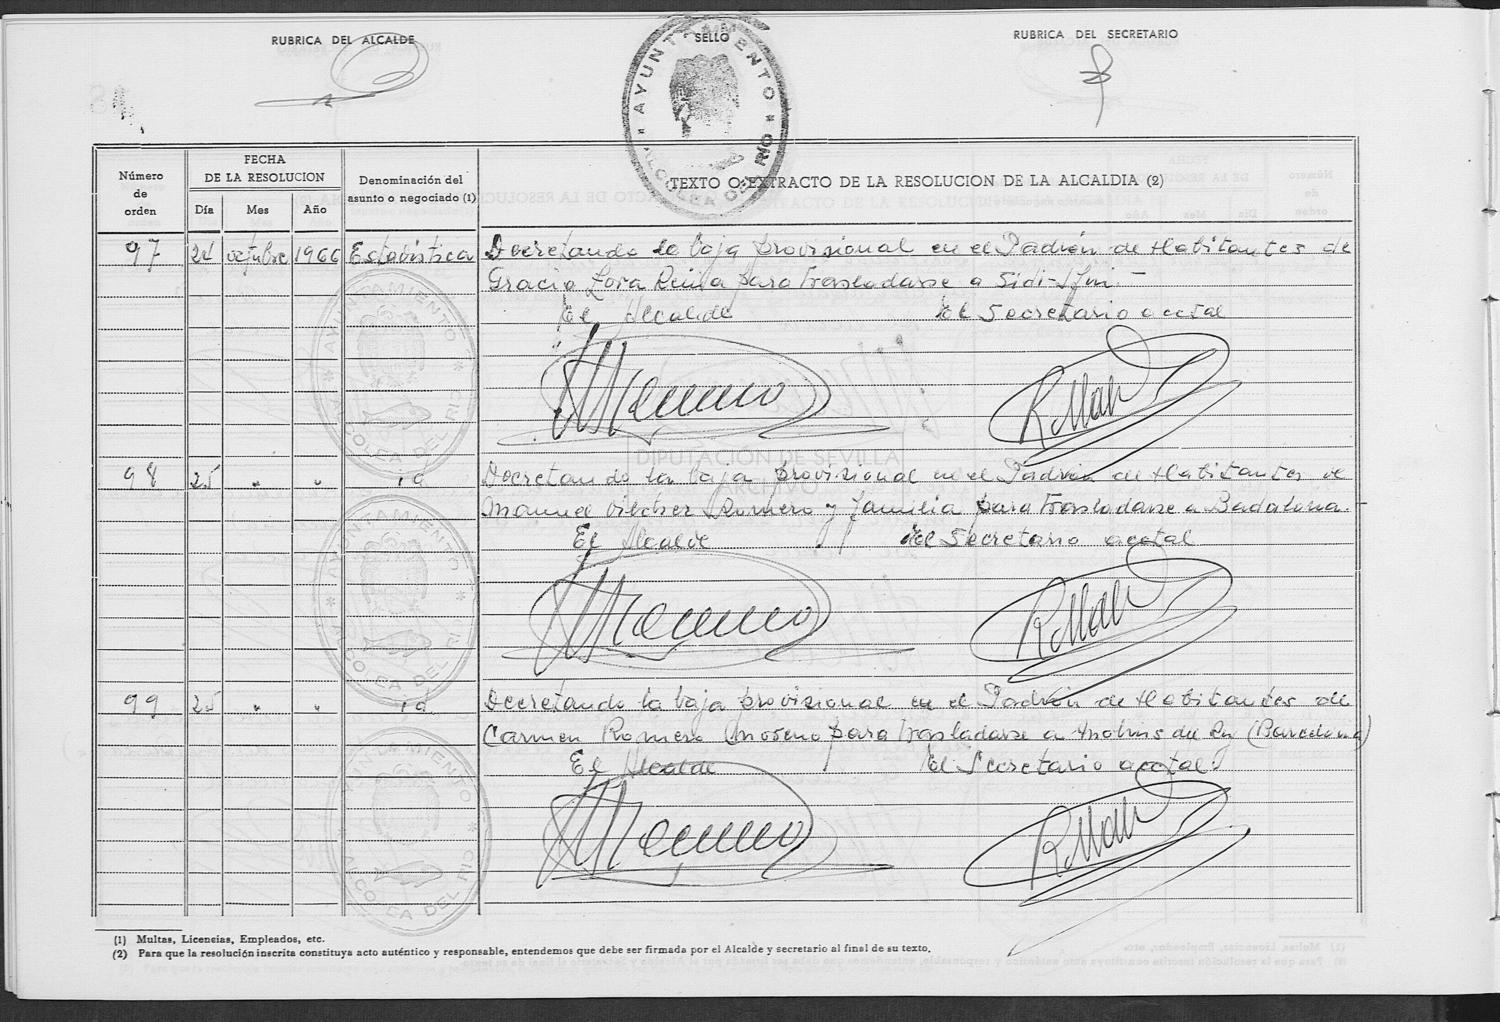 RUBRICA DEL ALCALDE
SELLO
RUBRICA DEL SECRETARIO
* AYUNTAMIENTO * ALCOLEA DEL RÍO
Número de orden
FECHA DE LA RESOLUCION
Día Mes Año
Denominación del asunto o negociado (1)
TEXTO O EXTRACTO DE LA RESOLUCION DE LA ALCALDIA (2)
97 24 octubre 1966 Estadística Decretando la baja provisional en el Padrón de Habitantes de
Gracia Lora Reina para trasladarse a Sidi-Ifni.—
El Alcalde El Secretario acctal
* AYUNTAMIENTO * ALCOLEA DEL RIO
DIPUTACIÓN DE SEVILLA
ARCHIVO
98 25 " " id Decretando la baja provisional en el Padrón de Habitantes de
Manuel Vilchez Romero y familia para trasladarse a Badalona.
El Alcalde El Secretario acctal
* AYUNTAMIENTO * ALCOLEA DEL RIO
99 25 " " id Decretando la baja provisional en el Padrón de Habitantes de
Carmen Romero para trasladarse a Molins de Rey (Barcelona)
El Alcalde El Secretario acctal
AYUNTAMIENTO * ALCOLEA DEL RIO
(1) Multas, Licencias, Empleados, etc.
(2) Para que la resolución inscrita constituya acto auténtico y responsable, entendemos que debe ser firmada por el Alcalde y secretario al final de su texto.